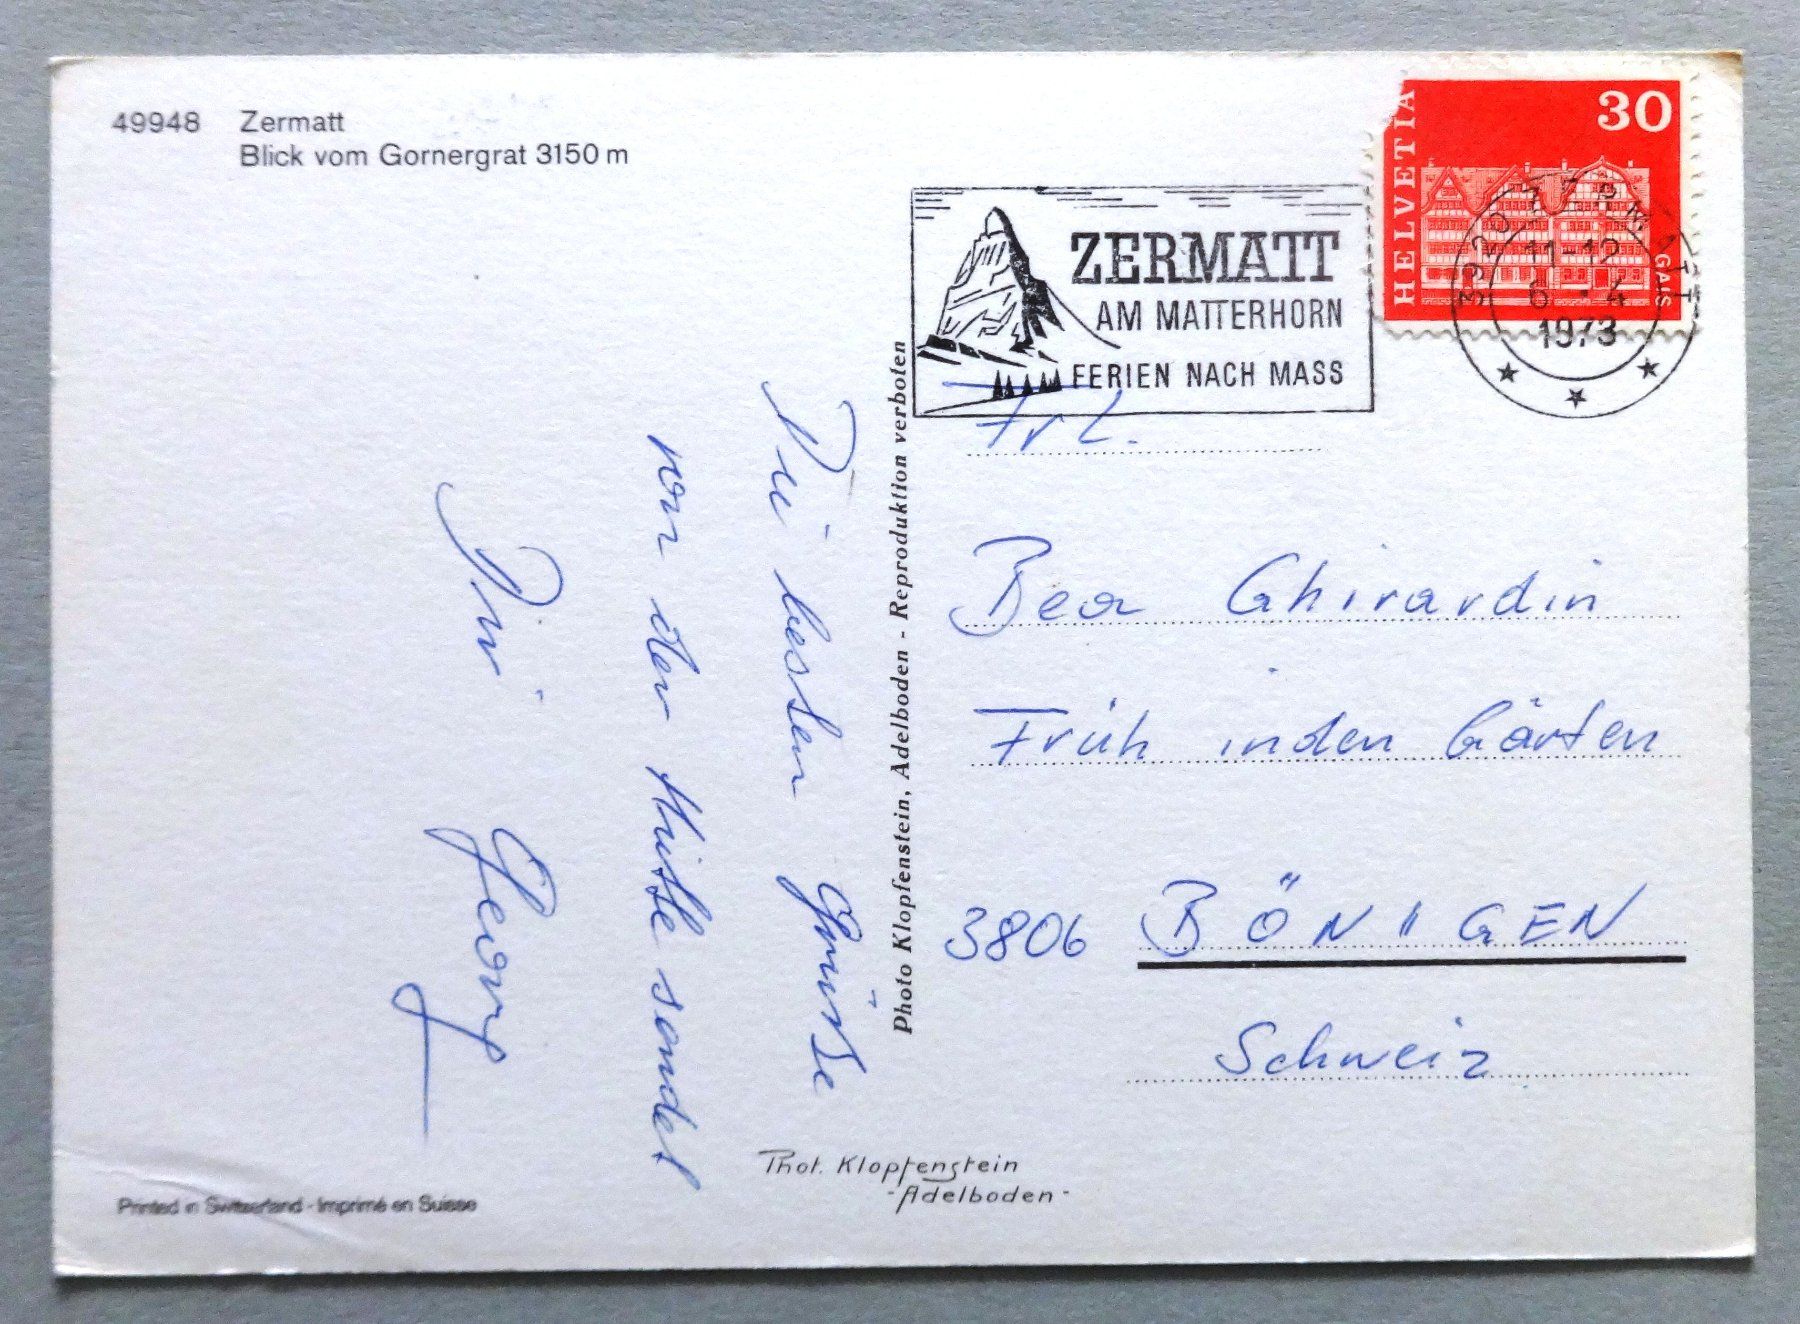 49948 Zermatt
Blick vom Gornergrat 3150 m
HELVETIA
30
GAIS
3920 ZERMATT
11-12
6.4
1973
ZERMATT
AM MATTERHORN
FERIEN NACH MASS
Die besten Grüsse
von der Hütte sendet
Georg
Photo Klopfenstein, Adelboden - Reproduktion verboten
Frl.
Bea Ghirardin
Früh in den Gärten
3806 BÖNIGEN
Schweiz
Phot. Klopfenstein
- Adelboden -
Printed in Switzerland - Imprimé en Suisse